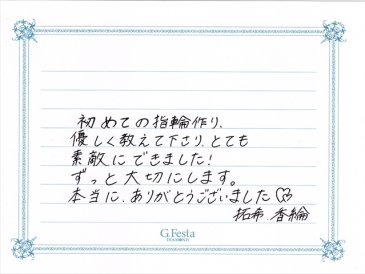 初めての指輪作り、
優しく教えて下さり、とても
素敵にできました!
ずっと大切にします。
本当に、ありがとうございました♡
拓希.香綸
G.Festa
DIAMOND